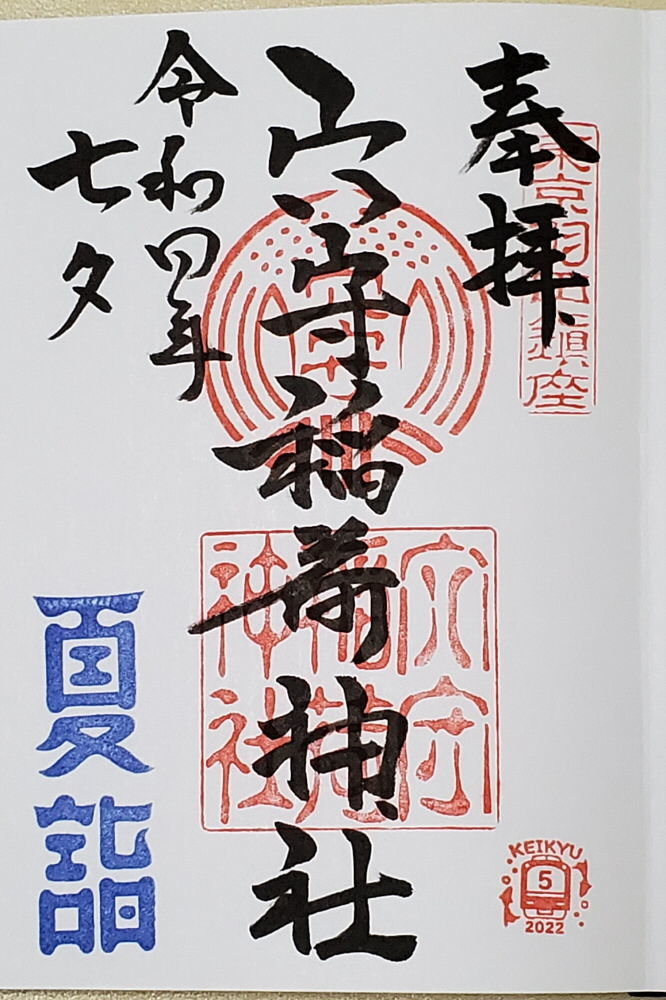 奉拝
東京羽田鎮座
穴守稲荷神社
穴守
稲荷
神社
令和四年
七夕
夏詣
KEIKYU
5
2022